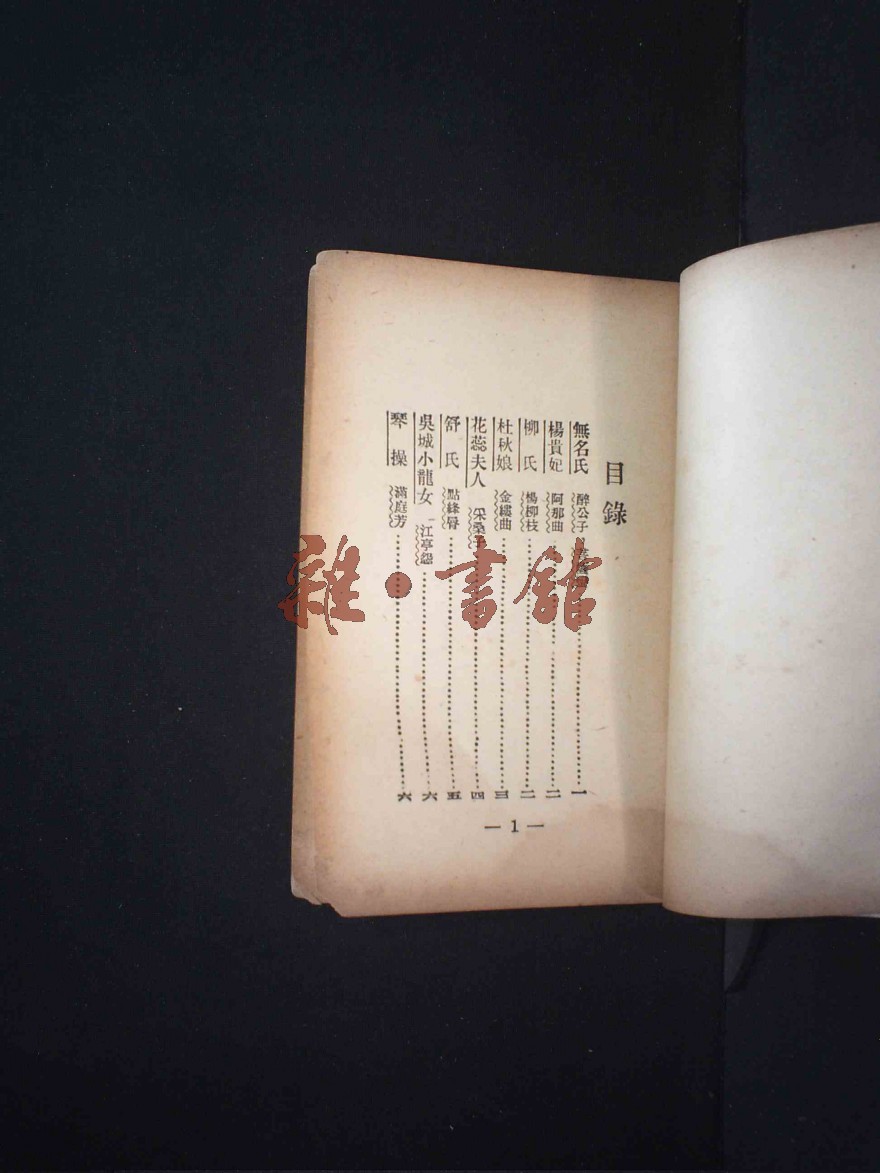 目錄
無名氏 醉公子 ……一
楊貴妃 阿那曲……二
柳氏 楊柳枝……二
杜秋娘 金縷曲……三
花蕊夫人 采桑子……四
舒氏 點絳脣……五
吳城小龍女 江亭怨……六
琴操 滿庭芳……六
— 1 —
雜·書館